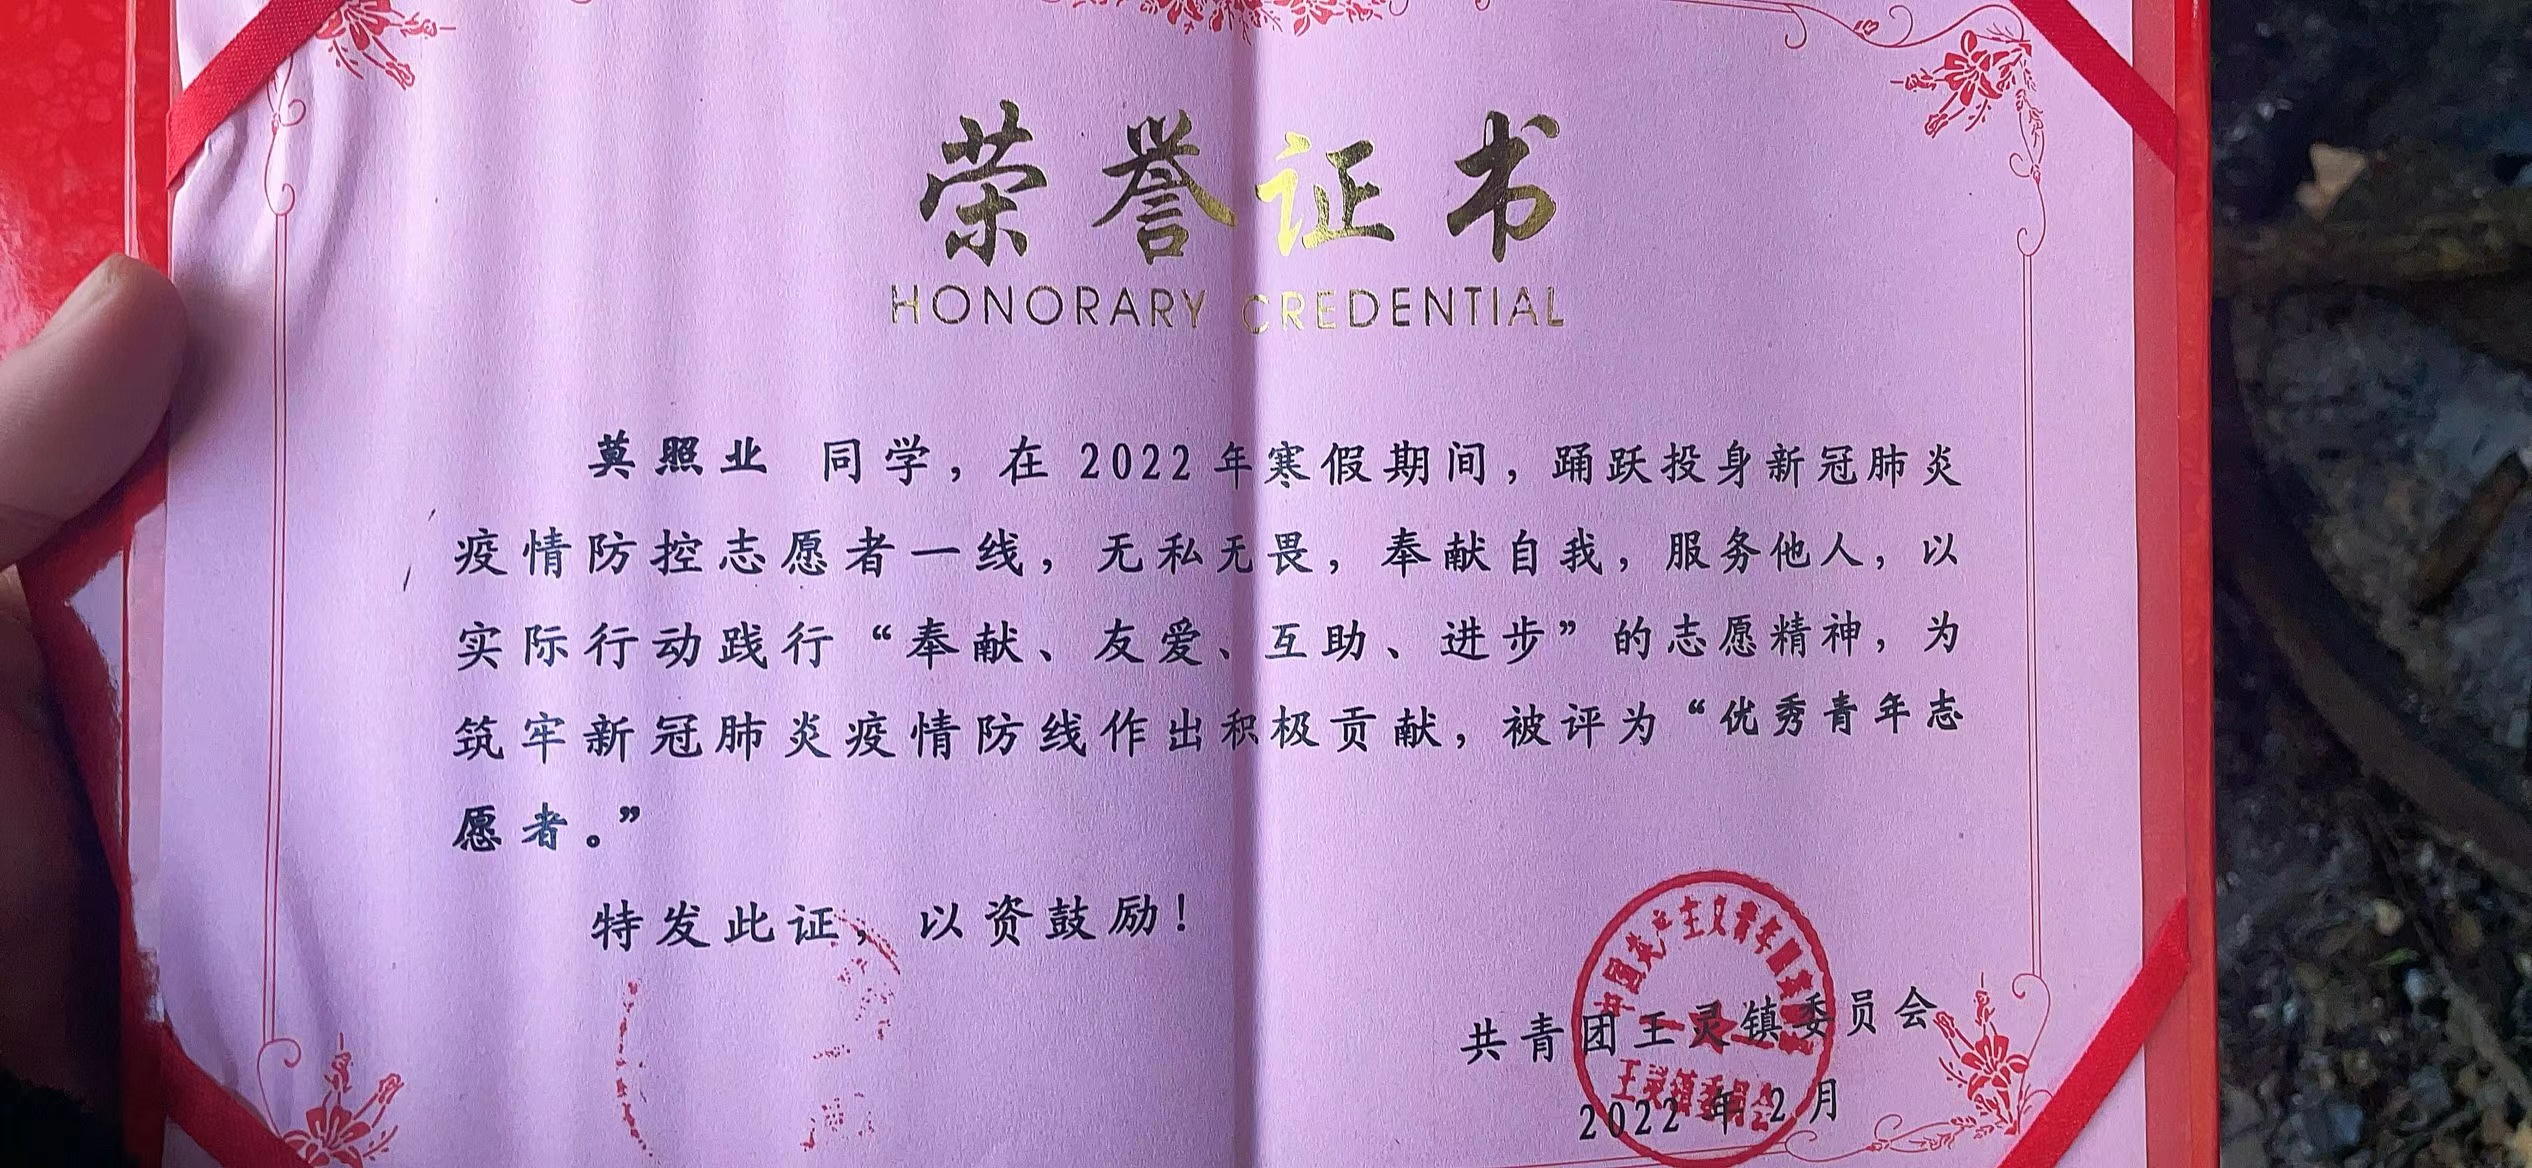 荣誉证书
HONORARY CREDENTIAL
莫照业 同学，在 2022 年寒假期间，踊跃投身新冠肺炎
疫情防控志愿者一线，无私无畏，奉献自我，服务他人，以
实际行动践行“奉献、友爱、互助、进步”的志愿精神，为
筑牢新冠肺炎疫情防线作出积极贡献，被评为“优秀青年志
愿者。”
特发此证，以资鼓励！
中国共产主义青年团
共青团王灵镇委员会
王灵镇委员会
2022 年 2 月